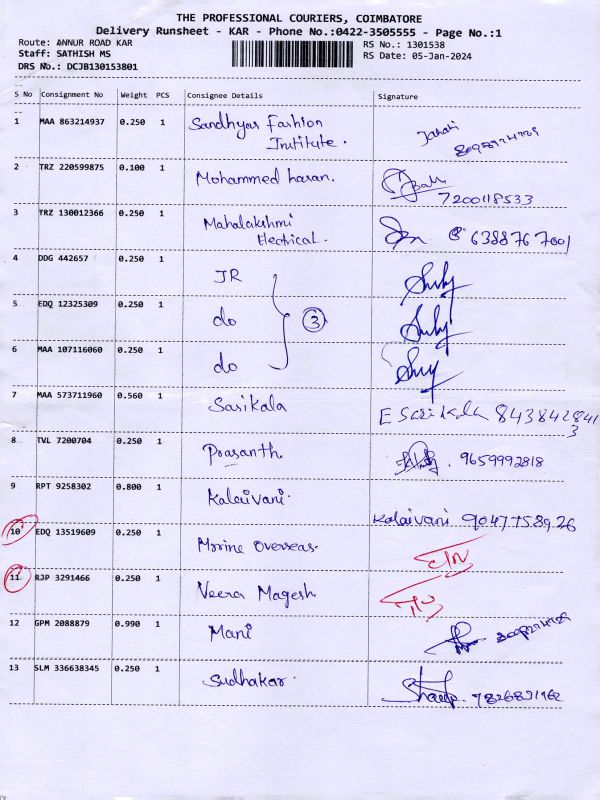 THE PROFESSIONAL COURIERS, COIMBATORE
Delivery Runsheet - KAR - Phone No.:0422-3505555 - Page No.:1
Route: ANNUR ROAD KAR
Staff: SATHISH MS
DRS No.: DCJB130153801
RS No.: 1301538
RS Date: 05-Jan-2024
S No Consignment No Weight PCS Consignee Details Signature
1 MAA 863214937 0.250 1 Sandhyas Fashion
Institute.
2 TRZ 220599875 0.100 1 Mohammed hasan.
7200118533
3 TRZ 130012366 0.250 1 Mahalakshmi
Electrical. 6388767001
4 DDG 442657 0.250 1 JR
5 EDQ 12325309 0.250 1 do 3
6 MAA 107116060 0.250 1 do
7 MAA 573711960 0.560 1 Sasikala E Sasikala 843842841
3
8 TVL 7200704 0.250 1 Prasanth. 9659992818
9 RPT 9258302 0.800 1 Kalaivani.
Kalaivani 9047758926
10 EDQ 13519609 0.250 1 Marine Overseas.
11 RJP 3291466 0.250 1 Veera Magesh.
12 GPM 2088879 0.990 1 Mani
13 SLM 336638345 0.250 1 Sudhakar. 7826891962